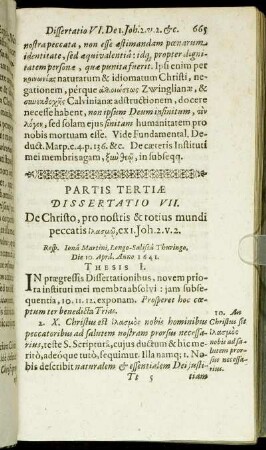 Dissertatio VI. De 1. Joh. 2. v. 2. &c. 665
nostra peccata, non esse æstimandam pœnarum
identitate, sed æquivalentiâ: idq; propter digni-
tatem personæ, quæ punita fuerit. Ipsi enim per
naturarum & idiomatum Christi, ne-
gationem, pérque Zwinglianæ, &
Calvinianæ adstructionem, docere
necesse habent, non ipsum Deum
sed solam ejus humanitatem pro
nobis mortuam esse. Vide Fundamental. De-
duct. Marp. c. 4. p. 136. &c. De cæteris Instituti
mei membris agam, in subseqq.
PARTIS TERTIÆ
DISSERTATIO VII.
De Christo, pro nostris & totius mundi
peccatis ἱλασμῷ, ex 1. Joh. 2. v. 2.
Resp. Jonâ Martini, Longo-Salissâ Thuringo,
Die 10. April. Anno 1641.
THESIS I.
IN prægressis Dissertationibus, novem prio-
ra instituti mei membra absolvi: jam subse-
quentia, 10. 11. 12. exponam. Prosperet hoc cœ-
ptum ter benedicta Trias.
2. X. Christus est ἱλασμὸς nobis hominibus
peccatoribus ad salutem nostram prorsus necessa-
rius, teste S. Scripturâ, cujus ductum & hîc me-
ritò, adeóque tutò, sequimur. Illa namq; 1. No-
bis describit naturalem & essentialem Dei justi-
Tt 5 tiam
10. An
Christus sit
ἱλασμὸς
nobis ad sa-
lutem pror-
sus necessa-
rius?